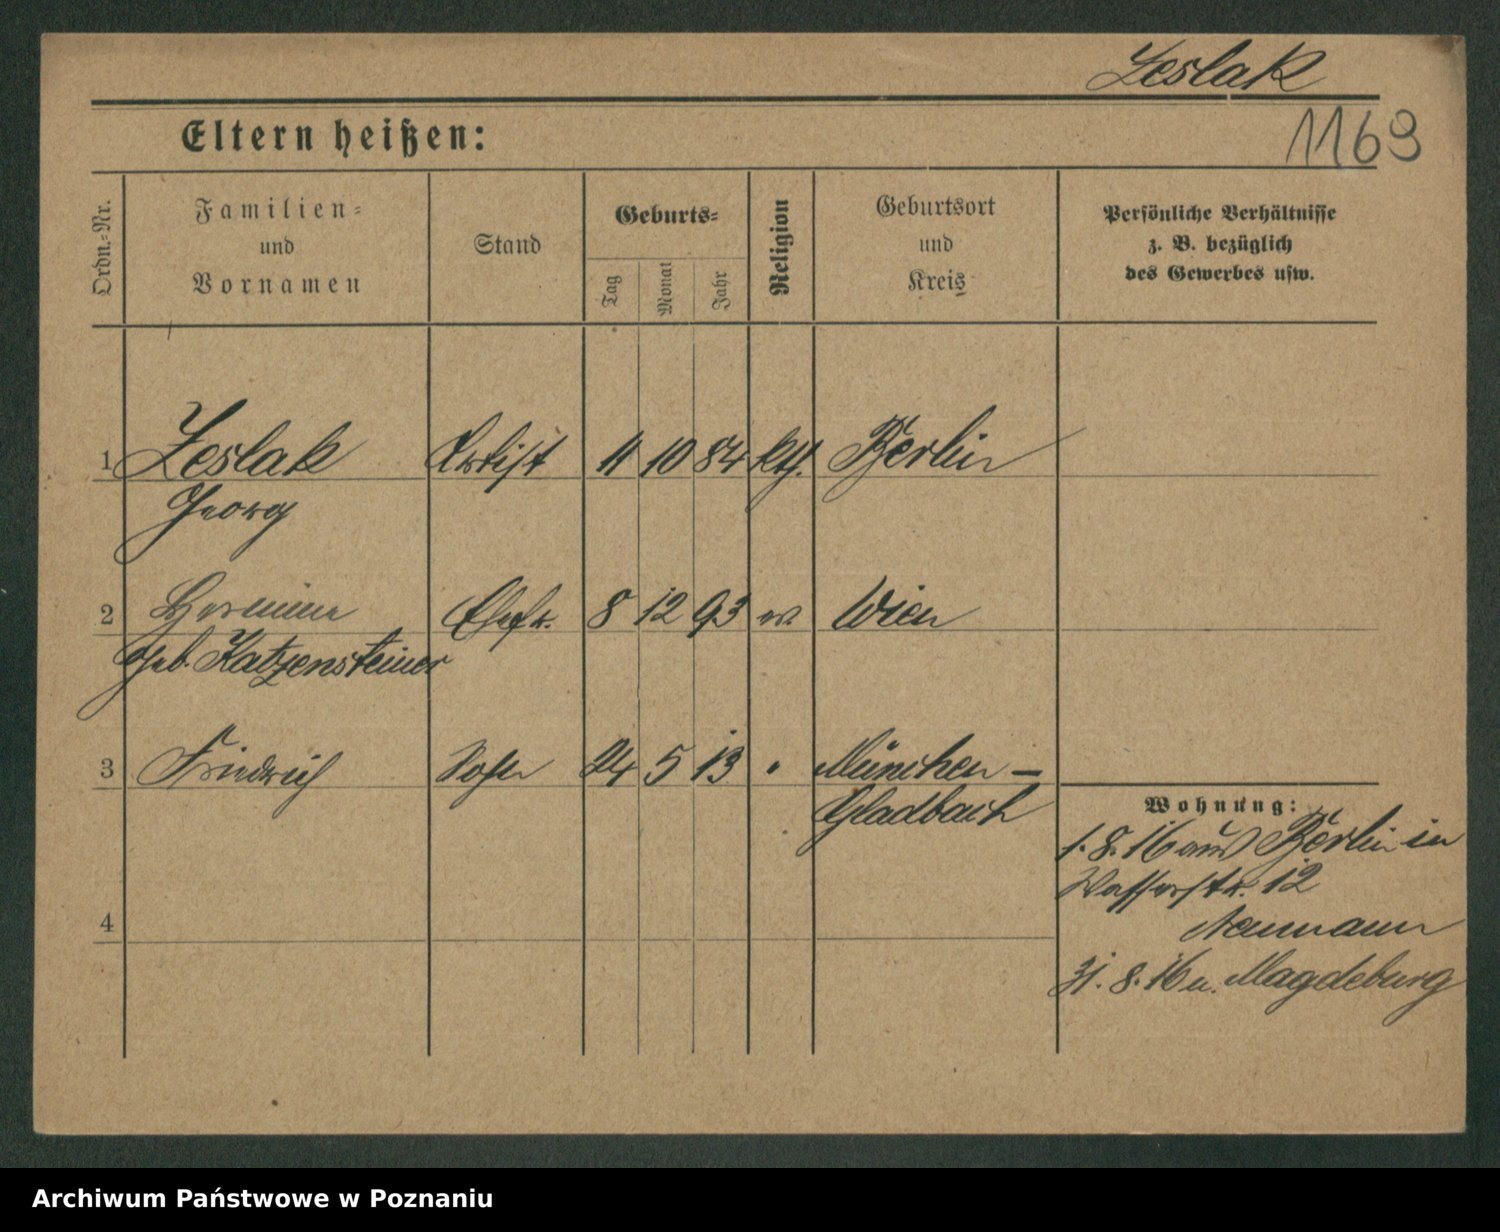 Leslak
1169
Eltern heißen:
Ordn.-Nr.
Familien-
und
Vornamen
Stand
Geburts-
Tag
Monat
Jahr
Religion
Geburtsort
und
Kreis
Persönliche Verhältnisse
z. B. bezüglich
des Gewerbes usw.
1 Leslak Artist 11 10 84 kth. Berlin
Georg
2 Hermine Ehefr. 8 12 93 ev. Wien
geb. Katzensteiner
3 Friedrich Sohn 24 5 13 " München-
Gladbach
4
Wohnung:
1.8.16 aus Berlin in
Wasserstr. 12
Neumann
31.8.16 n. Magdeburg
Archiwum Państwowe w Poznaniu